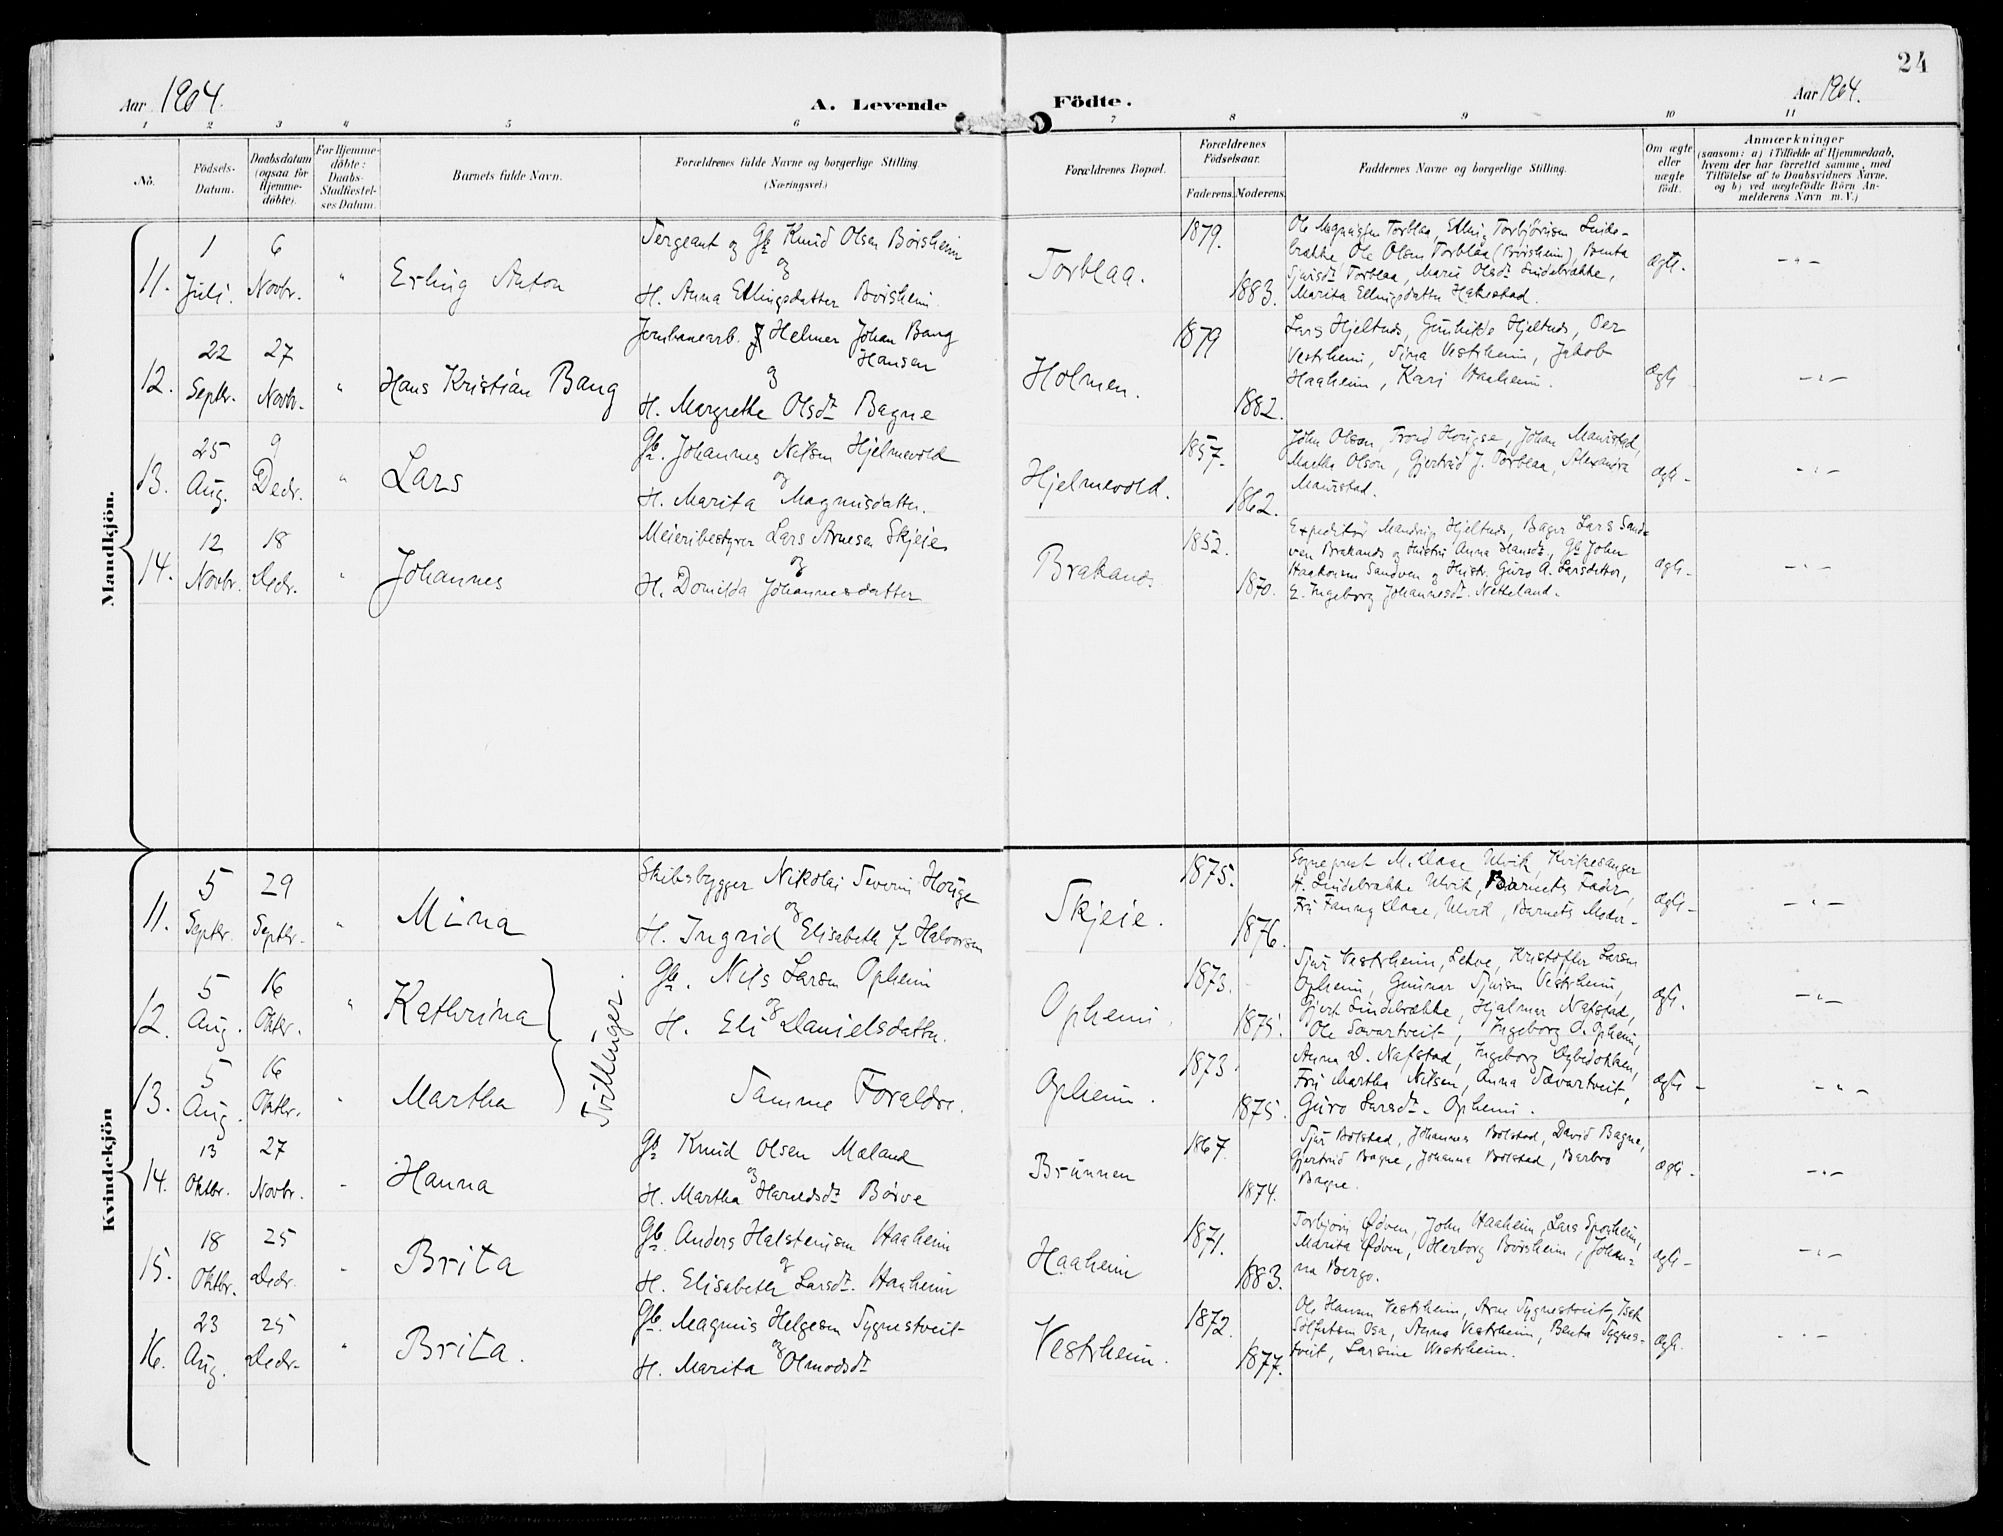 24
Aar 1904.
A. Levende Födte.
Aar 1904.
1 2 3 4 5 6 7 8 9 10 11
No.
Födsels-Datum.
Daabsdatum (ogsaa for Hjemme-döbte).
For Hjemme-döbte: Daabs-Stadfæstel-ses Datum.
Barnets fulde Navn.
Forældrenes fulde Navne og borgerlige Stilling.
(Næringsvei.)
Forældrenes Bopæl.
Forældrenes Födselsaar.
Faderens. Moderens.
Faddernes Navne og borgerlige Stilling.
Om ægte eller uægte födt.
Anmærkninger
(saasom: a) i Tilfælde af Hjemmedaab,
hvem der har forrettet samme, med
Tilföielse af to Daabsvidners Navne,
og b) ved uægtefödte Börn An-
melderens Navn m. V.)
Mandkjön.
11. 1 Juli. 6 Novbr. " Erling Anton
Sergeant og Gb. Knud Olsen Børsheim
og
H. Anna Ellingsdatter Børsheim.
Torblaa. 1879. 1883.
Ole Magnussen Torblaa, Elling Torbjörnsen Linde-
brække, Ole Olsen Torblaa (Børsheim), Benta
Sjursdt. Torblaa, Marie Olsdt. Lindebrække,
Marita Ellingsdatter Hakestad.
ægte. -"-
12. 22 Septbr. 27 Novbr. " Hans Kristian Bang
Jernbanearb. Helmer Johan Bang
Hansen
og
H. Margrethe Olsdt. Bagne
Holmen. 1879 1882.
Lars Hjeltnes, Gunhilde Hjeltnes, Per
Vestrheim, Sina Vestrheim, Jakob
Haaheim, Kari Haaheim.
ægte -"-
13. 25 Aug. 9 Decbr. " Lars
Gb. Johannes Nilsen Hjelmevold
og
H. Marita Magnusdatter.
Hjelmevold. 1857. 1862.
John Olson, Trond Hougse, Johan Maurstad,
Martha Olson, Gjertrud J. Torblaa, Alexandra
Maurstad.
ægte- -"-
14. 12 Novbr. 18 Decbr. " Johannes
Meieribestyrer Lars Arnesen Skjeie
og
H. Domilda Johannesdatter
Brakanes. 1852. 1870.
Expeditör Mandrup Hjeltnes, Bager Lars Sand-
ven Brakanes og Hustru Anna Hansdt., Gb. John
Haakonsen Sandven og Hustr. Guro A. Larsdatter,
E. Ingeborg Johannesdt. Netteland.
ægte- -"-
Kvindekjön
11. 5 Septbr. 29 Septbr. " Mina
Skibsbygger Nikolai Severin Hougse
og
H. Ingrid Elisabeth f. Halvorsen
Skjeie. 1875. 1876.
Sogneprest M. Daae Ulvik, Kirkesanger
H. Lindebrække Ulvik, Barnets Fader,
Fru Fanny Daae, Ulvik, Barnets Moder-
ægte- -"-
12. 5 Aug. 16 Oktbr. " Kathrina
Gb. Nils Larsen Opheim
og
H. Eli Danielsdatter.
Opheim. 1873. 1875.
Sjur Vestrheim, Kristoffer Larsen
Opheim, Gunnar Sjursen Vestrheim,
Gjert Lindebrække, Hjalmar Nafstad,
Ole Savartveit, Ingeborg O. Opheim,
ægte. -"-
Tvillinger.
13. 5 Aug. 16 Oktbr. " Martha
Samme Forældre.
Opheim. 1873. 1875.
Anna D. Nafstad, Ingeborg
Fru Martha Nilsen, Anna Savartveit,
Guro Larsdt. Opheim.
ægte- -"-
14. 13 Oktbr. 27 Novbr. - Hanna
Gb. Knud Olsen Mæland
og
H. Martha Børve
Brunnen 1867. 1874.
Sjur Bolstad, Johannes Bolstad, David Bagne,
Gjertrud Bagne, Johanna Bolstad, Barbro
Bagne.
ægte- -"-
15. 18 Oktbr. 25 Decbr. - Brita
Gb. Anders Halstensen Haaheim
og
H. Elisabeth Larsdt. Haaheim
Haaheim 1871. 1883.
Torbjörn Øöven, John Haaheim, Lars Sponheim,
Marita Øöven, Herborg Børsheim, Johan-
na Bergo.
ægte- -"-
16. 23 Aug. 25 Decbr. " Brita.
Gb. Magnus Helgesen Tygnestveit
og
H. Marita Olmodsdt.
Vestrheim. 1872. 1877.
Ole Hansen Vestrheim, Arne Tygnestveit, Isak
Osa, Anna Vestrheim, Benta Tygnes-
tveit, Larsine Vestrheim.
ægte. -"-